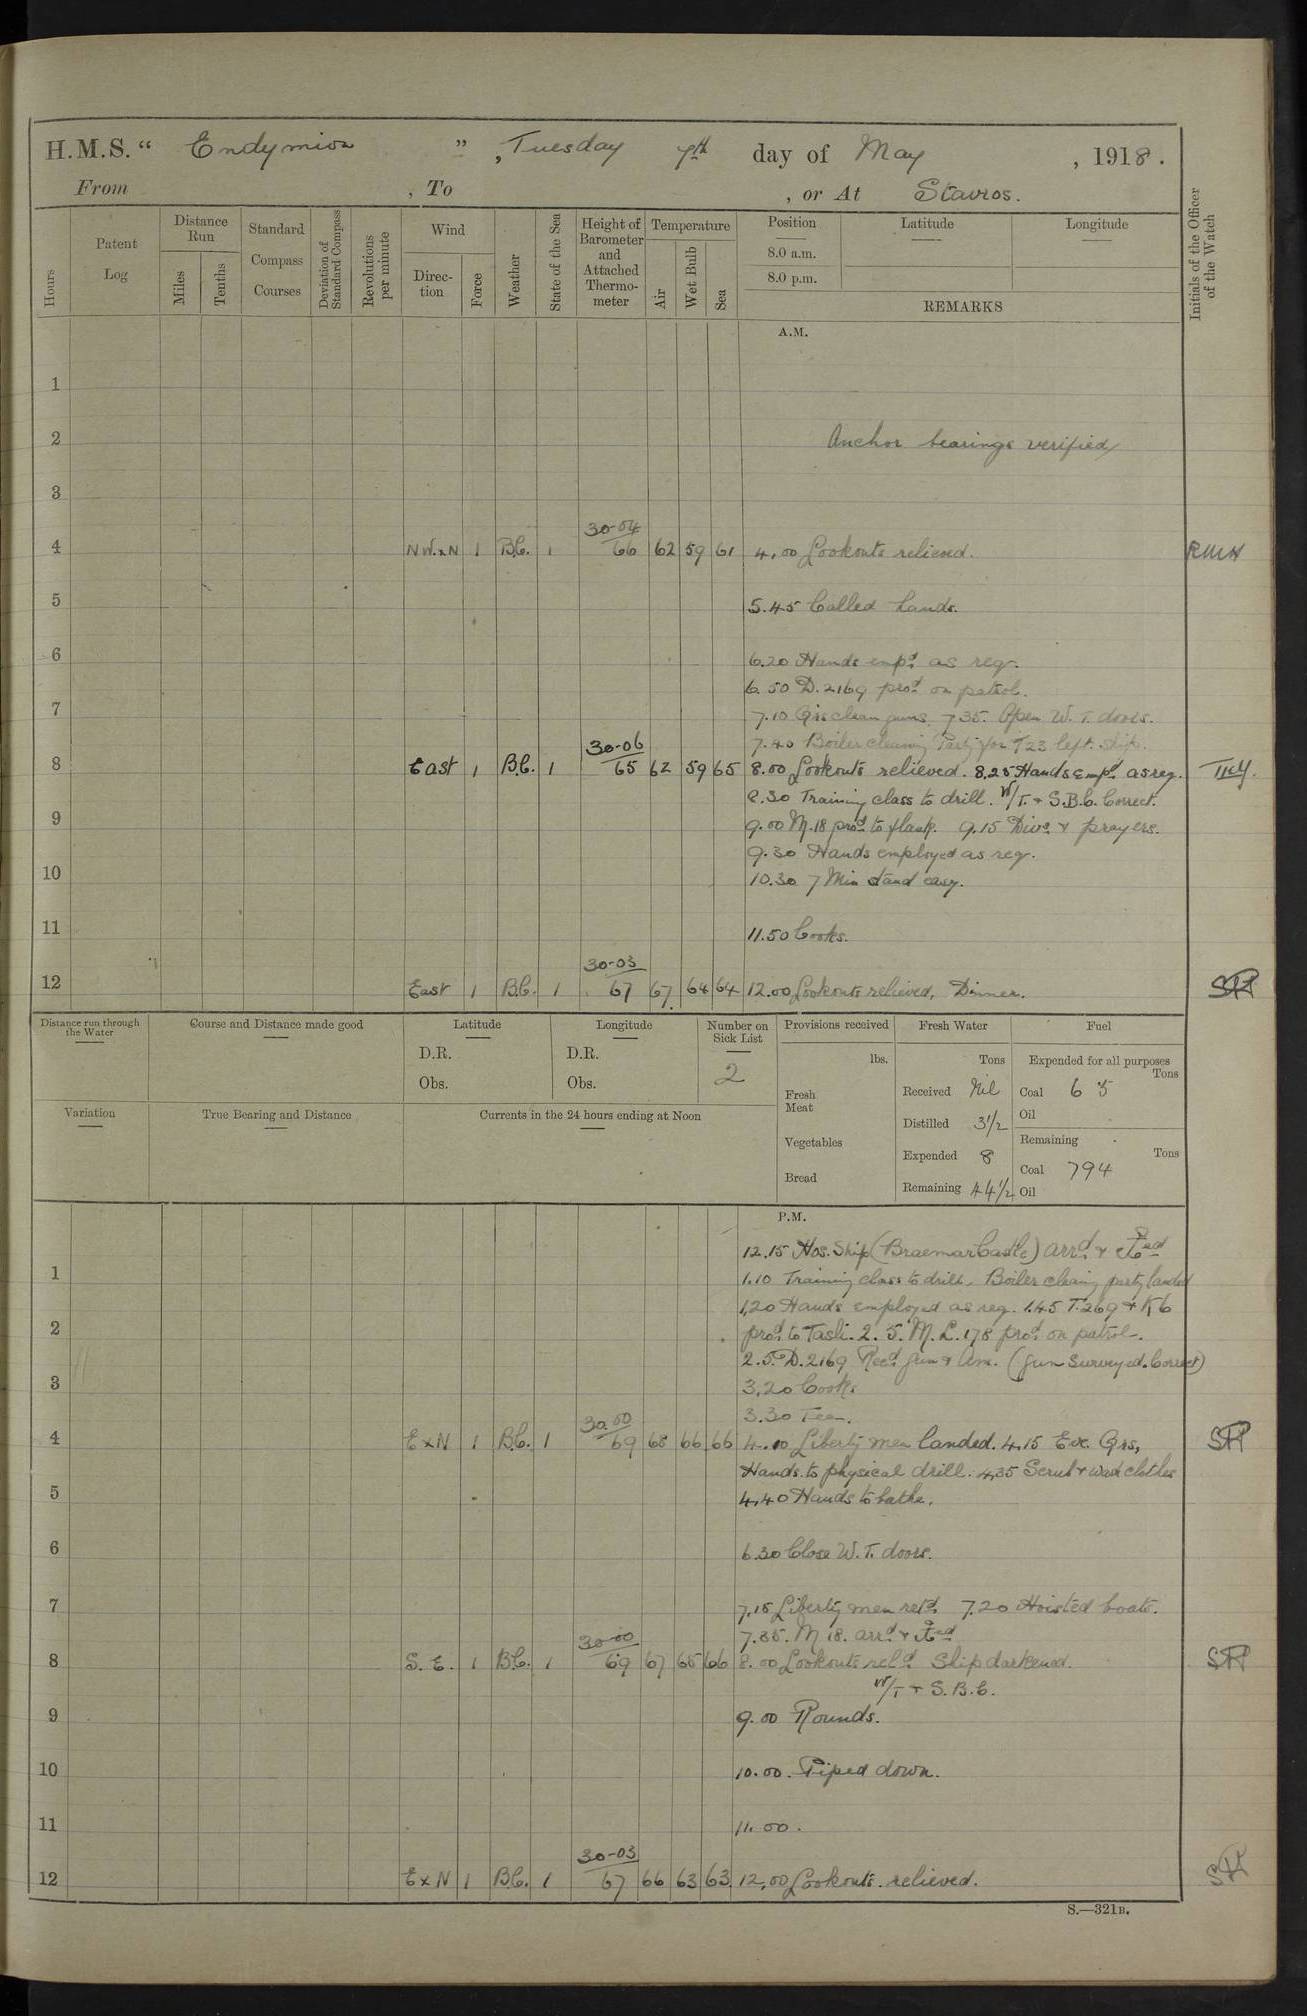 H.M.S. “ Endymion ” , Tuesday 7th day of May , 1918.
From , To , or At Stavros.
Hours
Patent Log
Distance Run
Miles
Tenths
Standard Compass Courses
Deviation of Standard Compass
Revolutions per minute
Wind
Direc-tion
Force
Weather
State of the Sea
Height of Barometer and Attached Thermo-meter
Temperature
Air
Wet Bulb
Sea
Position
8.0 a.m.
8.0 p.m.
Latitude
Longitude
REMARKS
Initials of the Officer of the Watch
A.M.
1
2 Anchor bearings verified
3
30-04
4 NW.xN 1 B.C. 1 66 62 59 61 4.00 Lookouts relieved.
5 5.45 Called hands.
6 6.20 Hands empd. as req.
6.50 D.2169 procd. on patrol.
7 7.10 Qrs clean guns. 7.35. Open W.T. doors.
30-06 7.40 Boiler cleaning Party for T23 left ship.
8 East 1 B.C. 1 65 62 59 65 8.00 Lookouts relieved. 8.25 Hands empd. as req.
8.30 Training class to drill. W/T. + S.B.C. Correct.
9 9.00 M.18 procd. to flank. 9.15 Divs. + prayers.
9.30 Hands employed as req.
10 10.30 7 Min stand easy.
11 11.50 Cooks.
30-03
12 East 1 B.C. 1 67 67 64 64 12.00 Lookouts relieved, Dinner.
Distance run through the Water
Course and Distance made good
Latitude
D.R.
Obs.
Longitude
D.R.
Obs.
Number on Sick List
2
Provisions received
lbs.
Fresh Meat
Vegetables
Bread
Fresh Water
Tons
Received Nil
Distilled 3½
Expended 8
Remaining 44½
Fuel
Expended for all purposes
Tons
Coal 6 5
Oil
Remaining
Tons
Coal 794
Oil
Variation
True Bearing and Distance
Currents in the 24 hours ending at Noon
P.M.
12.15 Hos. Ship (Braemar Castle) arrd. +
1 1.10 Training class to drill. Boiler cleaing party landed
1.20 Hands employed as req. 1.45 T.269 + K6
2 procd. to Tasli. 2.5. M.L.178 procd. on patrol.
2.5. D.2169 Recd. gun + Am. (gun Surveyed. Correct)
3 3.20 Cooks
30.00 3.30 Tea.
4 ExN 1 B.C. 1 69 68 66 66 4.10 Liberty men landed. 4.15 Eve. Qrs,
Hands to physical drill. 4.35 Scrub + wash clothes
5 4.40 Hands to bathe.
6 6.30 Close W.T. doors.
7 7.15 Liberty men retd. 7.20 Hoisted boats.
30-00 7.35. M 18. arrd. +
8 S.E. 1 B.C. 1 69 67 65 66 8.00 Lookouts reld. Ship darkened.
W/T + S.B.C.
9 9.00 Rounds.
10 10.00. Piped down.
11 11.00.
30-03
12 ExN 1 B.C. 1 67 66 63 63 12.00 Lookouts relieved.
S.—321B.